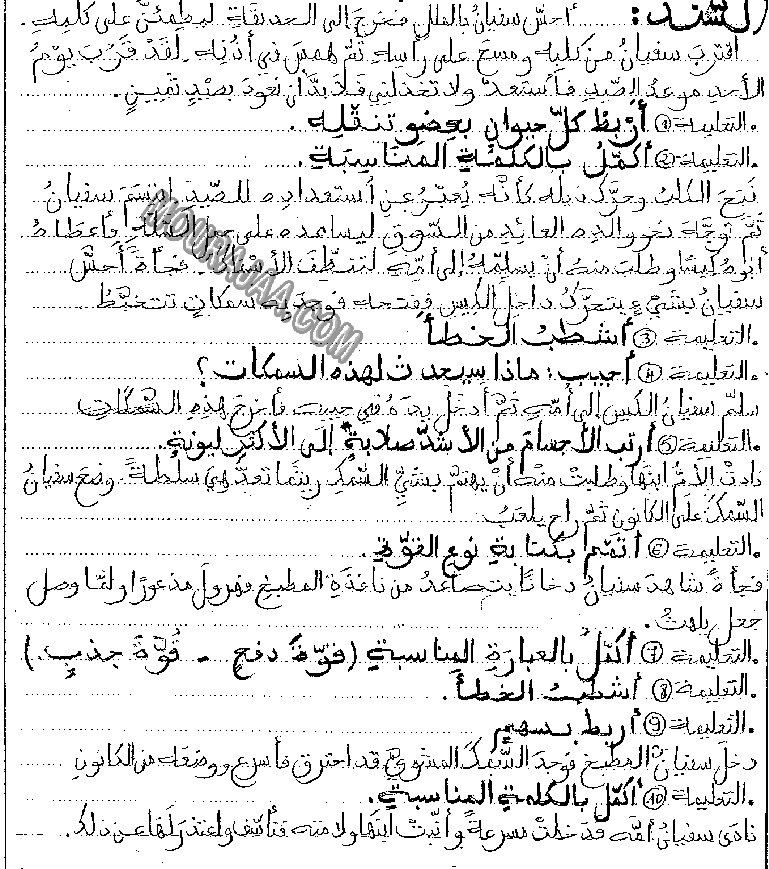 السّند: أحسّ سفيانُ بالملل فخرج إلى الحديقةِ ليطمئنَّ على كلبِهِ.
اقتربَ سفيانُ من كلبِهِ ومسحَ على رأسِهِ ثمّ همسَ في أذنِهِ. لقدْ قَرُبَ يومُ
الأحدِ موعدُ الصّيدِ فاستعدّ ولا تخذلني فلا بدّ أن نعودَ بصيدٍ ثمينٍ.
التعليمة ① أربط كلّ حيوانٍ بعضوِ تنقّلِهِ.
التعليمة ② أكمّلُ بالكلمةِ المناسبةِ.
نبَحَ الكلبُ وحرّكَ ذيلَه كأنّه يُعبّرُ عن استعدادِهِ للصّيدِ. ابتسمَ سفيانُ
ثمّ توجّه نحو والدِهِ العائدِ من السّوقِ ليساعدَه على حملِ السّلّةِ. فأعطاهُ
أبوهُ كيسًا وطلبَ منهُ أنْ يسلّمَهُ إلى أمّهِ لتنظّفَ الأسماكَ. فجأةً أحسَّ
سفيانُ بشيءٍ يتحرّكُ داخلَ الكيسِ ففتحه فوجدَ به سمكاتٍ تتخبّطُ
التعليمة ③ أشطبُ الخطأَ
التعليمة ④ أجيب: ماذا سيحدث لهذه السمكات؟
سلّمَ سفيانُ الكيسَ إلى أمّهِ ثمّ أدخلَ يدهُ في جيبِهِ فأخرجَ هذِهِ
التعليمة ⑤ أرتّبُ الأجسامَ من الأشدّ صلابةً إلى الأكثرِ ليونةٍ.
نادتْ الأمُّ ابنَها وطلبتْ منهُ أنْ يهتمَّ بشيِّ السّمكِ ريثما تعدُّ هي سلطةً. وضعَ سفيانُ
السّمكَ على الكانونِ ثمّ راح يلعبُ.
التعليمة ⑥ أتمّم بكتابةِ نوعِ القوّةِ.
فجأةً شاهدَ سفيانُ دخانًا يتصاعدُ من نافذةِ المطبخِ فهرولَ مذعورًا ولمّا وصل
جعل يلهثُ.
التعليمة ⑦ أكمّلُ بالعبارةِ المناسبةِ (قوّةَ دفعٍ - قُوّةَ جذبٍ.)
التعليمة ⑧ أشطبُ الخطأَ.
التعليمة ⑨ أربط بسهمٍ
دخلَ سفيانُ المطبخَ فوجدَ السّمكَ المشويَّ قد احترق فأسرع ورفعه من الكانونِ
التعليمة ⑩ أكمّل بالكلمةِ المناسبةِ.
نادى سفيانُ أمّه فحضرتْ مسرعةً وأنّبتْ ابنَها ولامته فتأسّف واعتذر لها عن ذلك.
MOURAJAA.COM